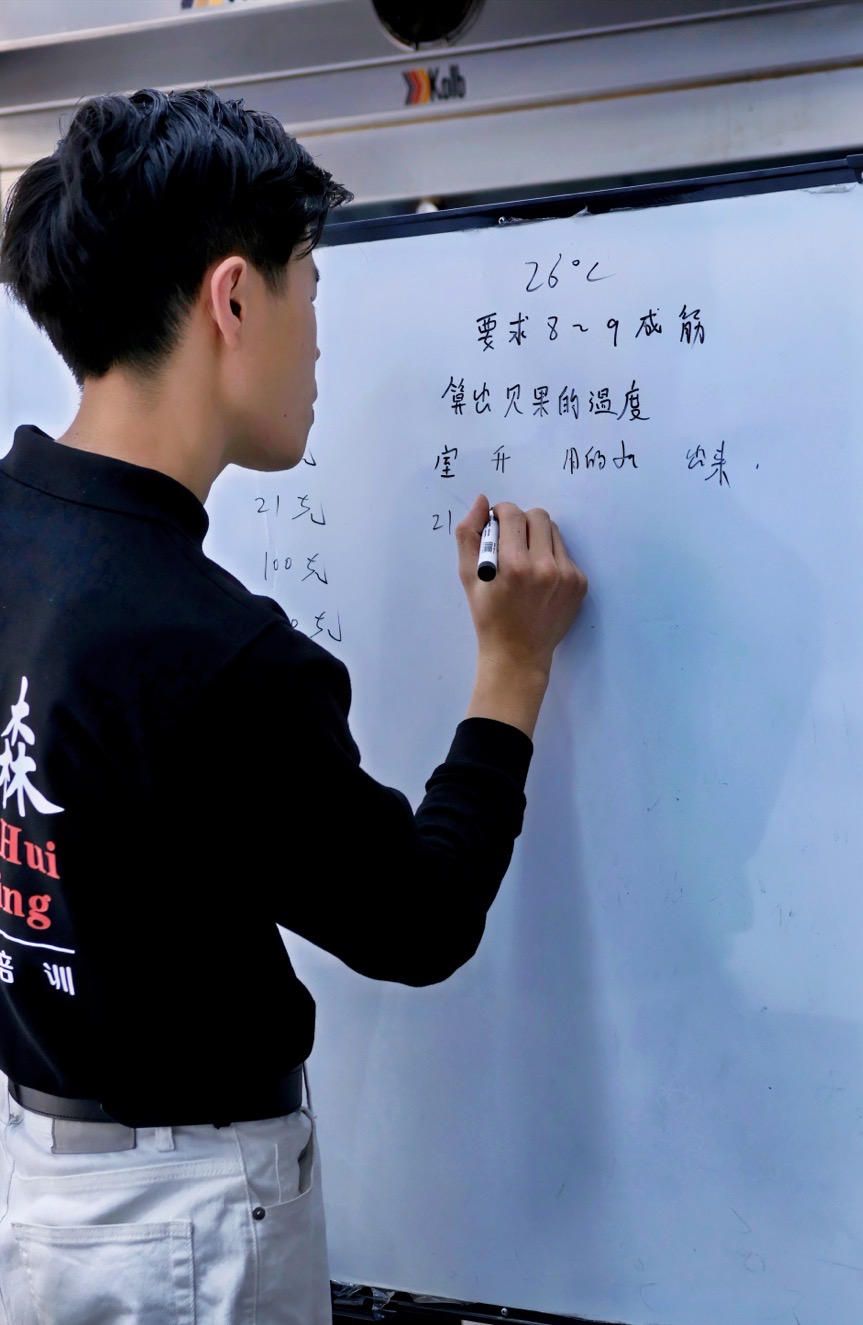 Kolb
26°C
要求8~9成筋
算出贝果的温度
室 升 用的 出来.
21克
21
100克
克
森
Hui
ing
培训